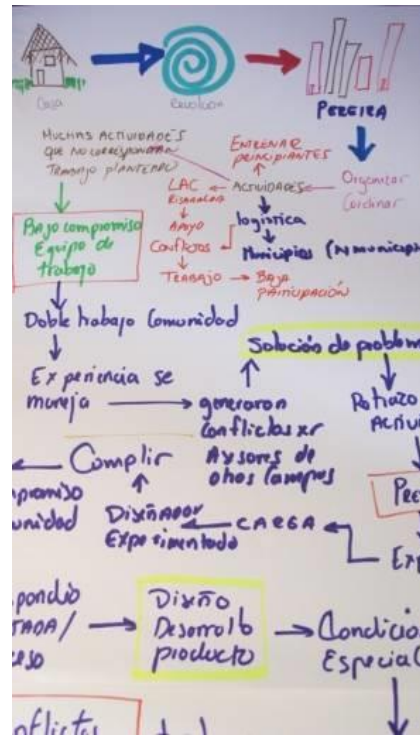 Casa
PEREIRA
MUCHAS ACTIVIDADES
QUE NO CORRESPONDIAN
TRABAJO PLANTEADO
ENTRENAR
PRINCIPIANTES
LAC
ACTIVIDADES
Organizar
Coordinar
Apoyo
logistica
Conflictos
Municipios
TRABAJO
BAJA
PARTICIPACIÓN
Bajo compromiso
Equipo de
trabajo
Doble trabajo Comunidad
Solución de problem
Experiencia se
maneja
generaron
Conflictos xr
Asesores de
otros Campos
Retrazo
Activi
Cumplir
promiso
unidad
Diseñador
Experimentado
CARGA
PRE
Exp
pondio
TADA/
eso
Diseño
Desarrollo
producto
Condicio
Especial
nflictos